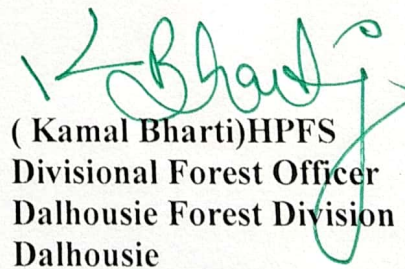 K Bharti
( Kamal Bharti)HPFS
Divisional Forest Officer
Dalhousie Forest Division
Dalhousie